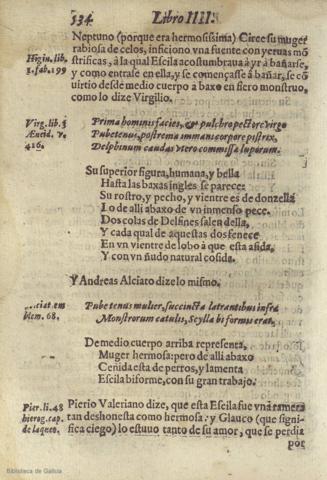 534 Libro IIII.
Neptuno (porque era hermosissima) Circe su muger
rabiosa de celos, inficiono vna fuente con yeruas mõ
strificas, à la qual Escila acostumbraua à yr à bañarse,
y como entrase en ella, y se començasse à bañar, se cõ
uirtio desde medio cuerpo a baxo en fiero monstruo,
como lo dize Virgilio.
Higin. lib.
1. fab. 199
Virg. lib. 3
Æneid. v.
426.
Prima hominis facies, & pulchro pectore virgo
Pube tenui, postrema immani corpore pistrix,
Delphinum caudas vtero commissa luporum.
Su superior figura, humana, y bella
Hasta las baxas ingles se parece:
Su rostro, y pecho, y vientre es de donzella
Lo de alli abaxo de vn inmenso pece.
Dos colas de Delfines salen della,
Y cada qual de aquestas dos fenece
En vn vientre de lobo à que esta asida,
Y con vn ñudo natural cosida.
Y Andreas Alciato dize lo mismo.
em
blem. 68.
Pube tenus mulier, succincta latrantibus infra
Monstrorum catulis, Scylla biformis erat.
De medio cuerpo arriba representa,
Muger hermosa: pero de alli abaxo
Ceñida esta de perros, y lamenta
Escila biforme, con su gran trabajo.
Pier. li. 48
hierog. cap.
de laqueo.
Pierio Valeriano dize, que esta Escila fue vna ramera
tan deshonesta como hermosa: y Glauco (que signi-
fica ciego) lo estuuo tanto de su amor, que se perdia
por
Biblioteca de Galicia